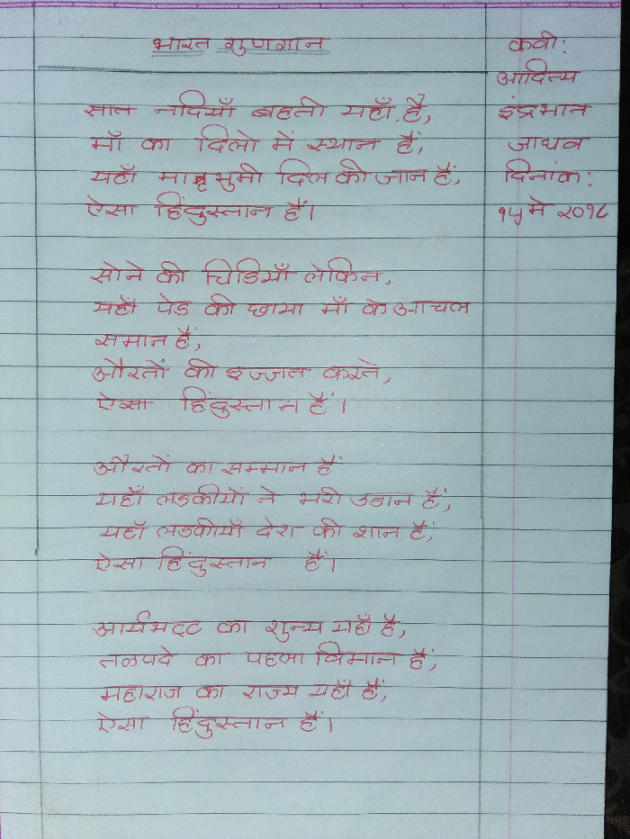 भारत गुणगान
कवी:
आदित्य
इंद्रभान
जाधव
दिनांक:
१५ मे २०१८
सात नदियाँ बहती यहाँ है,
माँ का दिलो में स्थान हैं,
यहाँ मातृभुमी दिल की जान हैं,
ऐसा हिंदुस्तान हैं।
सोने की चिडियाँ लेकिन,
यहाँ पेड की छाया माँ के आचल
समान हैं,
औरतों की इज्जत करते,
ऐसा हिंदुस्तान हैं।
औरतों का सम्मान हैं
यहाँ लडकीयों ने भरी उडान हैं,
यहाँ लडकीयाँ देश की शान हैं,
ऐसा हिंदुस्तान हैं।
आर्यभट्ट का शुन्य यहाँ है,
तळपदे का पहला विमान हैं,
महाराज का राज्य यहाँ हैं,
ऐसा हिंदुस्तान हैं।